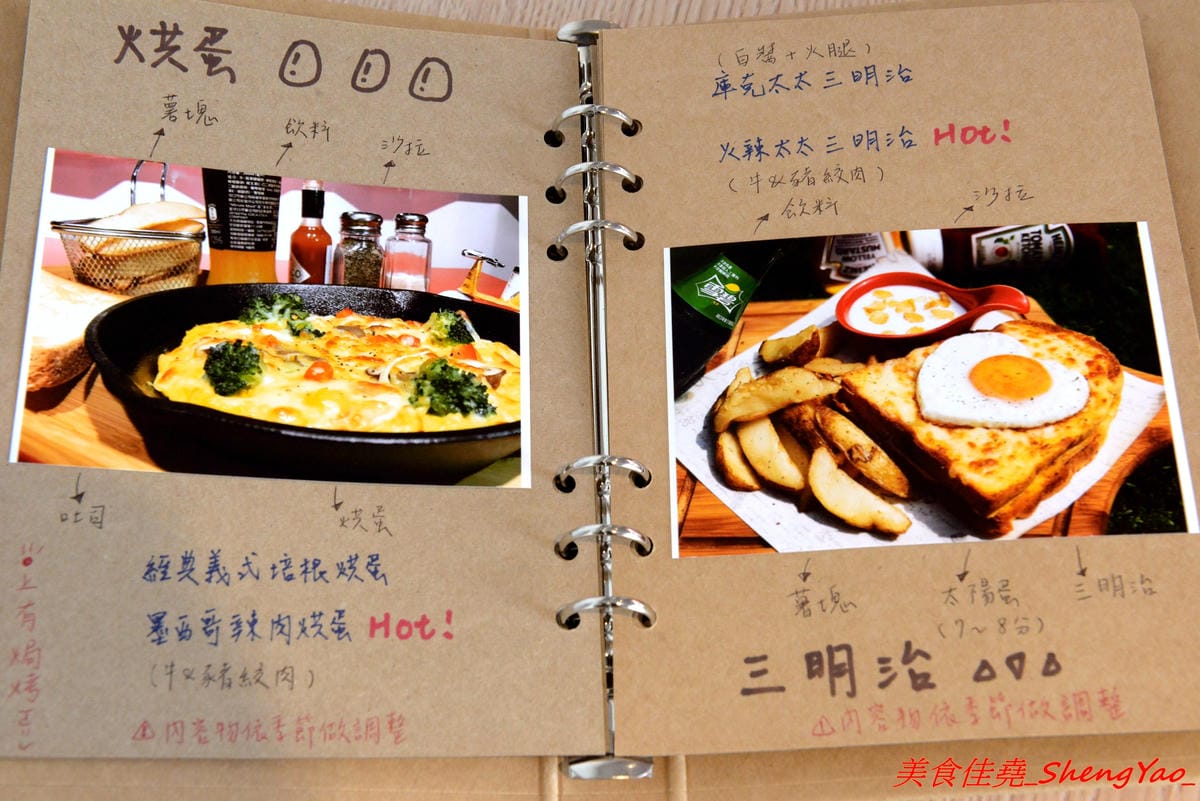 烘蛋
薯塊
飲料
沙拉
吐司
烘蛋
經典義式培根烘蛋
墨西哥辣肉烘蛋 Hot!
(牛&豬絞肉)
上有焗烤
⚠內容物依季節做調整
(白醬+火腿)
庫克太太三明治
火辣太太三明治 Hot!
(牛&豬絞肉)
飲料
沙拉
YELLOW
MUSTARD
薯塊
太陽蛋
(7~8分)
三明治
三明治
⚠內容物依季節做調整
美食佳堯_ShengYao_